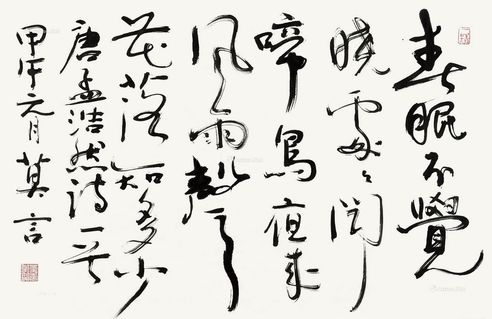 春眠不覺
曉處々聞
啼鳥夜來
風雨聲
花落知多少
唐孟浩然詩一首
甲午元月莫言